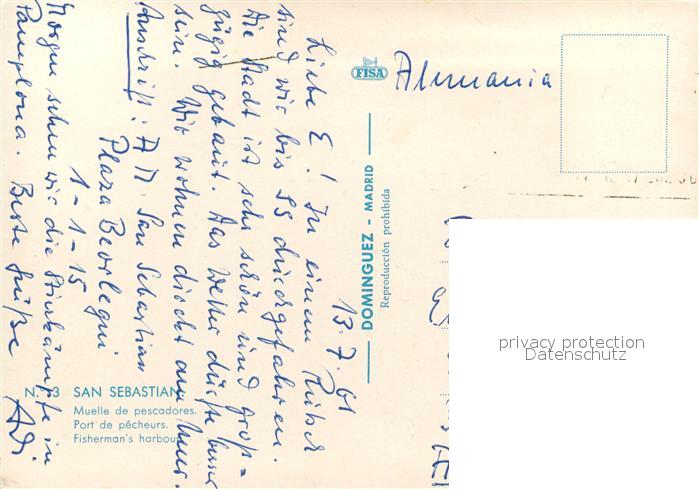 13.7.61
Liebe E! In einem Rutsch
sind wir bis SS durchgefahren.
Die Stadt ist sehr schön und groß=
zügig gebaut. Das Wetter dürfte besser
sein. Wir wohnen direkt am Meer.
Anschrift: A D San Sebastian
Plaza Beorlegui
1-1-15
Morgen sehen wir die Stierkämpfe in
Pamplona. Beste Grüße
Adi
FISA
Alemania
DOMINGUEZ - MADRID
Reproducción prohibida
N. 3 SAN SEBASTIAN
Muelle de pescadores.
Port de pêcheurs.
Fisherman's harbour
privacy protection
Datenschutz